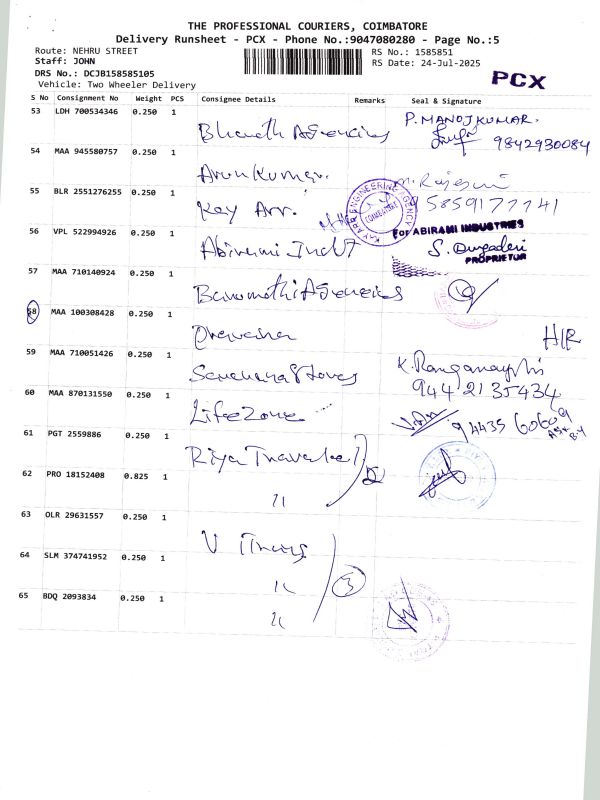 THE PROFESSIONAL COURIERS, COIMBATORE
Delivery Runsheet - PCX - Phone No.:9047080280 - Page No.:5
Route: NEHRU STREET
RS No.: 1585851
Staff: JOHN
RS Date: 24-Jul-2025
DRS No.: DCJB158585105
PCX
Vehicle: Two Wheeler Delivery
S No Consignment No Weight PCS Consignee Details Remarks Seal & Signature
53 LDH 700534346 0.250 1 Bharath Agencies P. MANOJKUMAR.
9842930084
54 MAA 945580757 0.250 1 Arun Kumar.
55 BLR 2551276255 0.250 1 Kay Arr.
KAY ARR ENGINEERING AGENCY
COIMBATORE
56 VPL 522994926 0.250 1 Abirami Indt
For ABIRAMI INDUSTRIES
S. Durgadevi
PROPRIETOR
57 MAA 710140924 0.250 1 Banumathi Agencies
58 MAA 100308428 0.250 1
H/R
59 MAA 710051426 0.250 1 K. Ranganayaki
9442135434
60 MAA 870131550 0.250 1 Life Zone
94435 60609
61 PGT 2559886 0.250 1 Riya Travel
62 PRO 18152408 0.825 1 11 2
63 OLR 29631557 0.250 1 V
64 SLM 374741952 0.250 1 11 3
65 BDQ 2093834 0.250 1 11